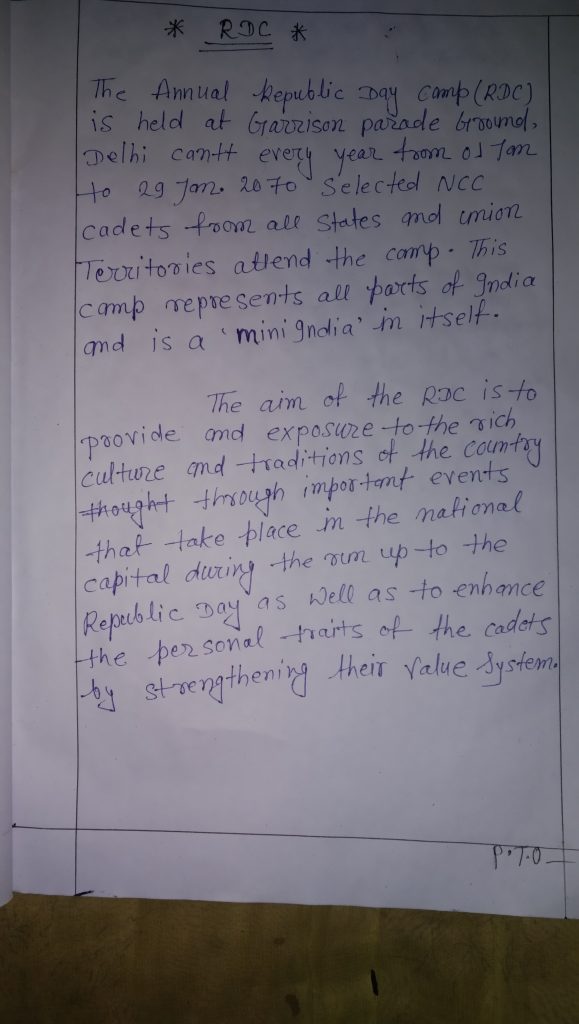 * RDC *
The Annual Republic Day Camp (RDC)
is held at Garrison parade Ground,
Delhi cantt every year from 01 Jan
to 29 Jan. 2070 Selected NCC
cadets from all States and union
Territories attend the camp. This
camp represents all parts of India
and is a 'mini India' in itself.
The aim of the RDC is to
provide and exposure to the rich
culture and traditions of the country
thought through important events
that take place in the national
capital during the run up to the
Republic Day as well as to enhance
the personal traits of the cadets
by strengthening their value System.
P.T.O